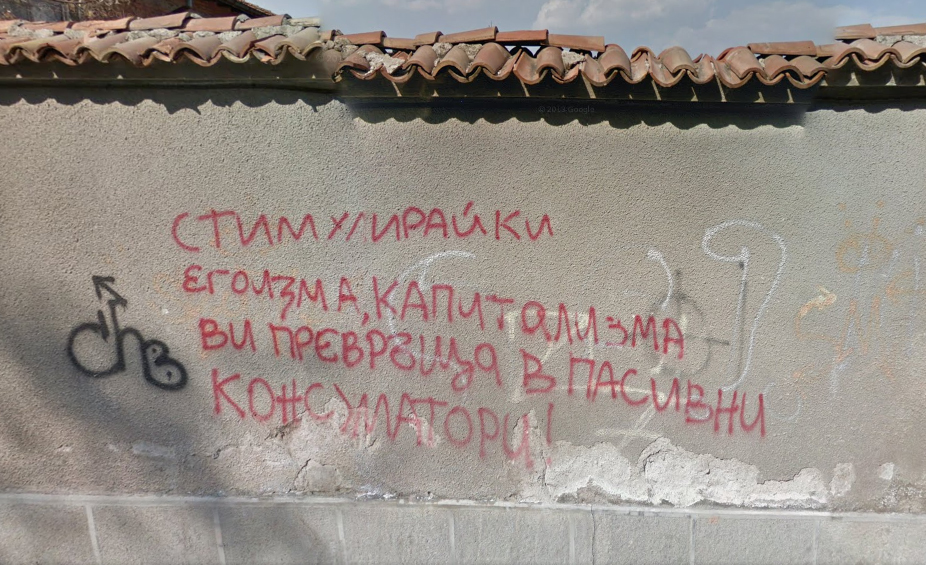 © 2018 Google
СТИМУЛИРАЙКИ
ЕГОИЗМА, КАПИТАЛИЗМА
ВИ ПРЕВРЪЩА В ПАСИВНИ
КОНСУМАТОРИ!